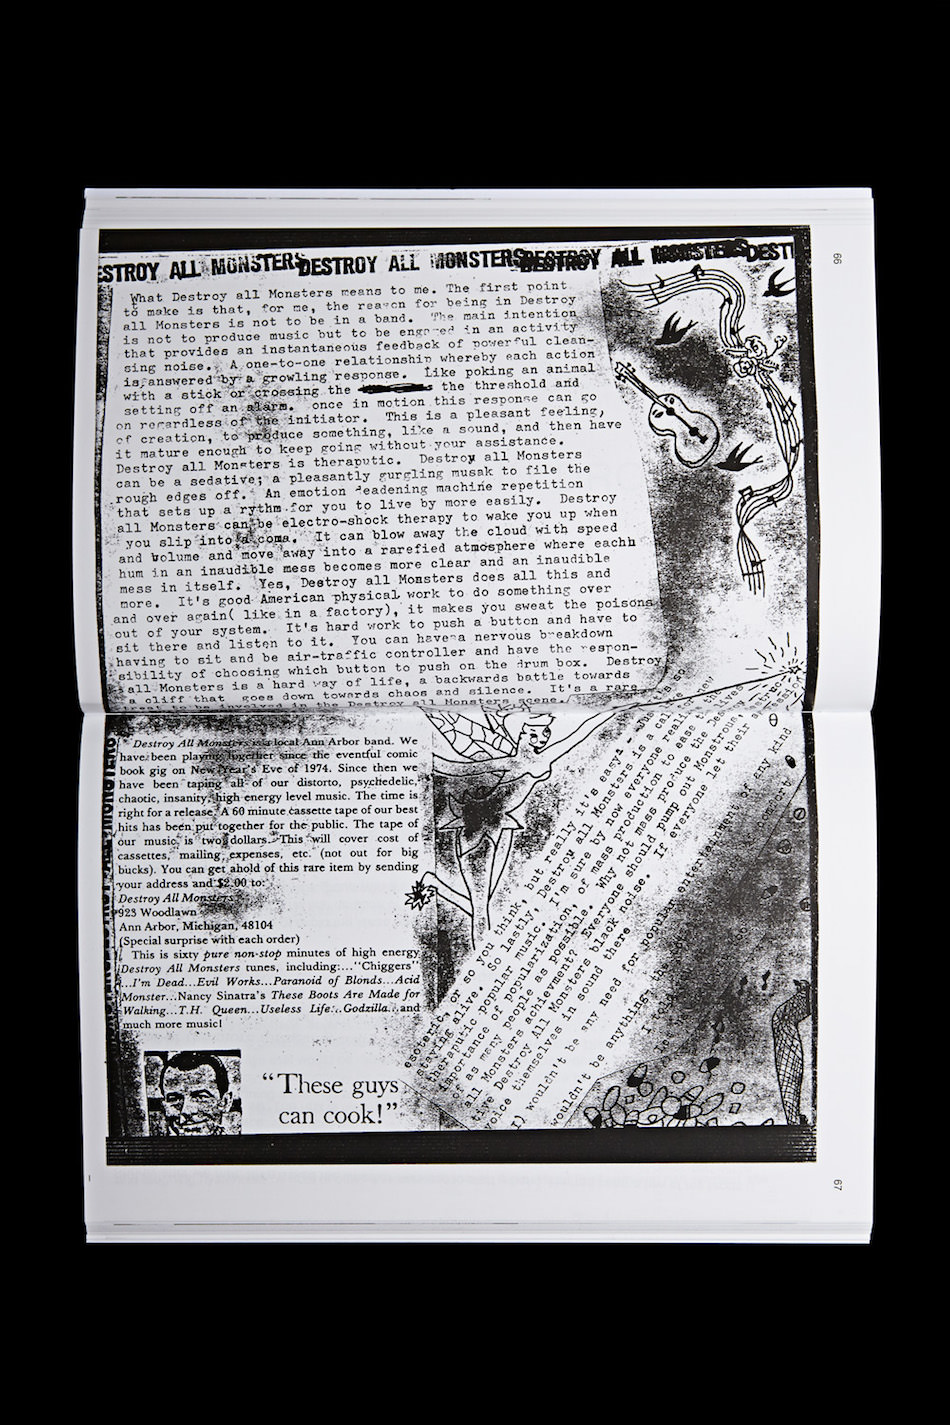 ESTROY ALL MONSTERS DESTROY ALL MONSTERS DESTROY ALL MONSTERS DESTI
66
What Destroy all Monsters means to me. The first point
to make is that, for me, the reason for being in Destroy
all Monsters is not to be in a band. The main intention
is not to produce music but to be engaged in an activity
that provides an instantaneous feedback of powerful clean-
sing noise. A one-to-one relationship whereby each action
is answered by a growling response. Like poking an animal
with a stick or crossing the the threshold and
setting off an alarm. once in motion this response can go
on regardless of the initiator. This is a pleasant feeling,
of creation, to produce something, like a sound, and then have
it mature enough to keep going without your assistance.
Destroy all Monsters is theraputic. Destroy all Monsters
can be a sedative; a pleasantly gurgling musak to file the
rough edges off. An emotion deadening machine repetition
that sets up a rythm for you to live by more easily. Destroy
all Monsters can be electro-shock therapy to wake you up when
you slip into a coma. It can blow away the cloud with speed
and volume and move away into a rarefied atmosphere where eachh
hum in an inaudible mess becomes more clear and an inaudible
mess in itself. Yes, Destroy all Monsters does all this and
more. It's good American physical work to do something over
and over again( like in a factory), it makes you sweat the poisons
out of your system. It's hard work to push a button and have to
sit there and listen to it. You can have a nervous breakdown
having to sit and be air-traffic controller and have the respon-
sibility of choosing which button to push on the drum box. Destroy
all Monsters is a hard way of life, a backwards battle towards
a cliff that goes down towards chaos and silence. It's a rare
involved in the Destroy all Monsters scene.
Destroy All Monsters is a local Ann Arbor band. We
have been playing together since the eventful comic
book gig on New Year's Eve of 1974. Since then we
have been taping all of our distorto, psychedelic,
chaotic, insanity, high energy level music. The time is
right for a release. A 60 minute cassette tape of our best
hits has been put together for the public. The tape of
our music is two dollars. This will cover cost of
cassettes, mailing expenses, etc. (not out for big
bucks). You can get ahold of this rare item by sending
your address and $2.00 to:
Destroy All Monsters
923 Woodlawn
Ann Arbor, Michigan, 48104
(Special surprise with each order)
This is sixty pure non-stop minutes of high energy
Destroy All Monsters tunes, including:..."Chiggers"
...I'm Dead...Evil Works...Paranoid of Blonds...Acid
Monster...Nancy Sinatra's These Boots Are Made for
Walking...T.H. Queen...Useless Life...Godzilla...and
much more music!
"These guys
can cook!"
esoteric, or so you think, but really it's easy
staying alive. So lastly, Destroy all Monsters is a
theraputic popular music. I'm sure by now everyone
importance of popularization, of mass production to ease
as many people as possible. Why not mass produce the
all Monsters achievment? Everyone should pump out Monstrous
Destroy All Monsters black noise. If everyone let their
voice themselves in sound there
wouldn't be any need for popular entertainment of any kind
wouldn't be anything
67